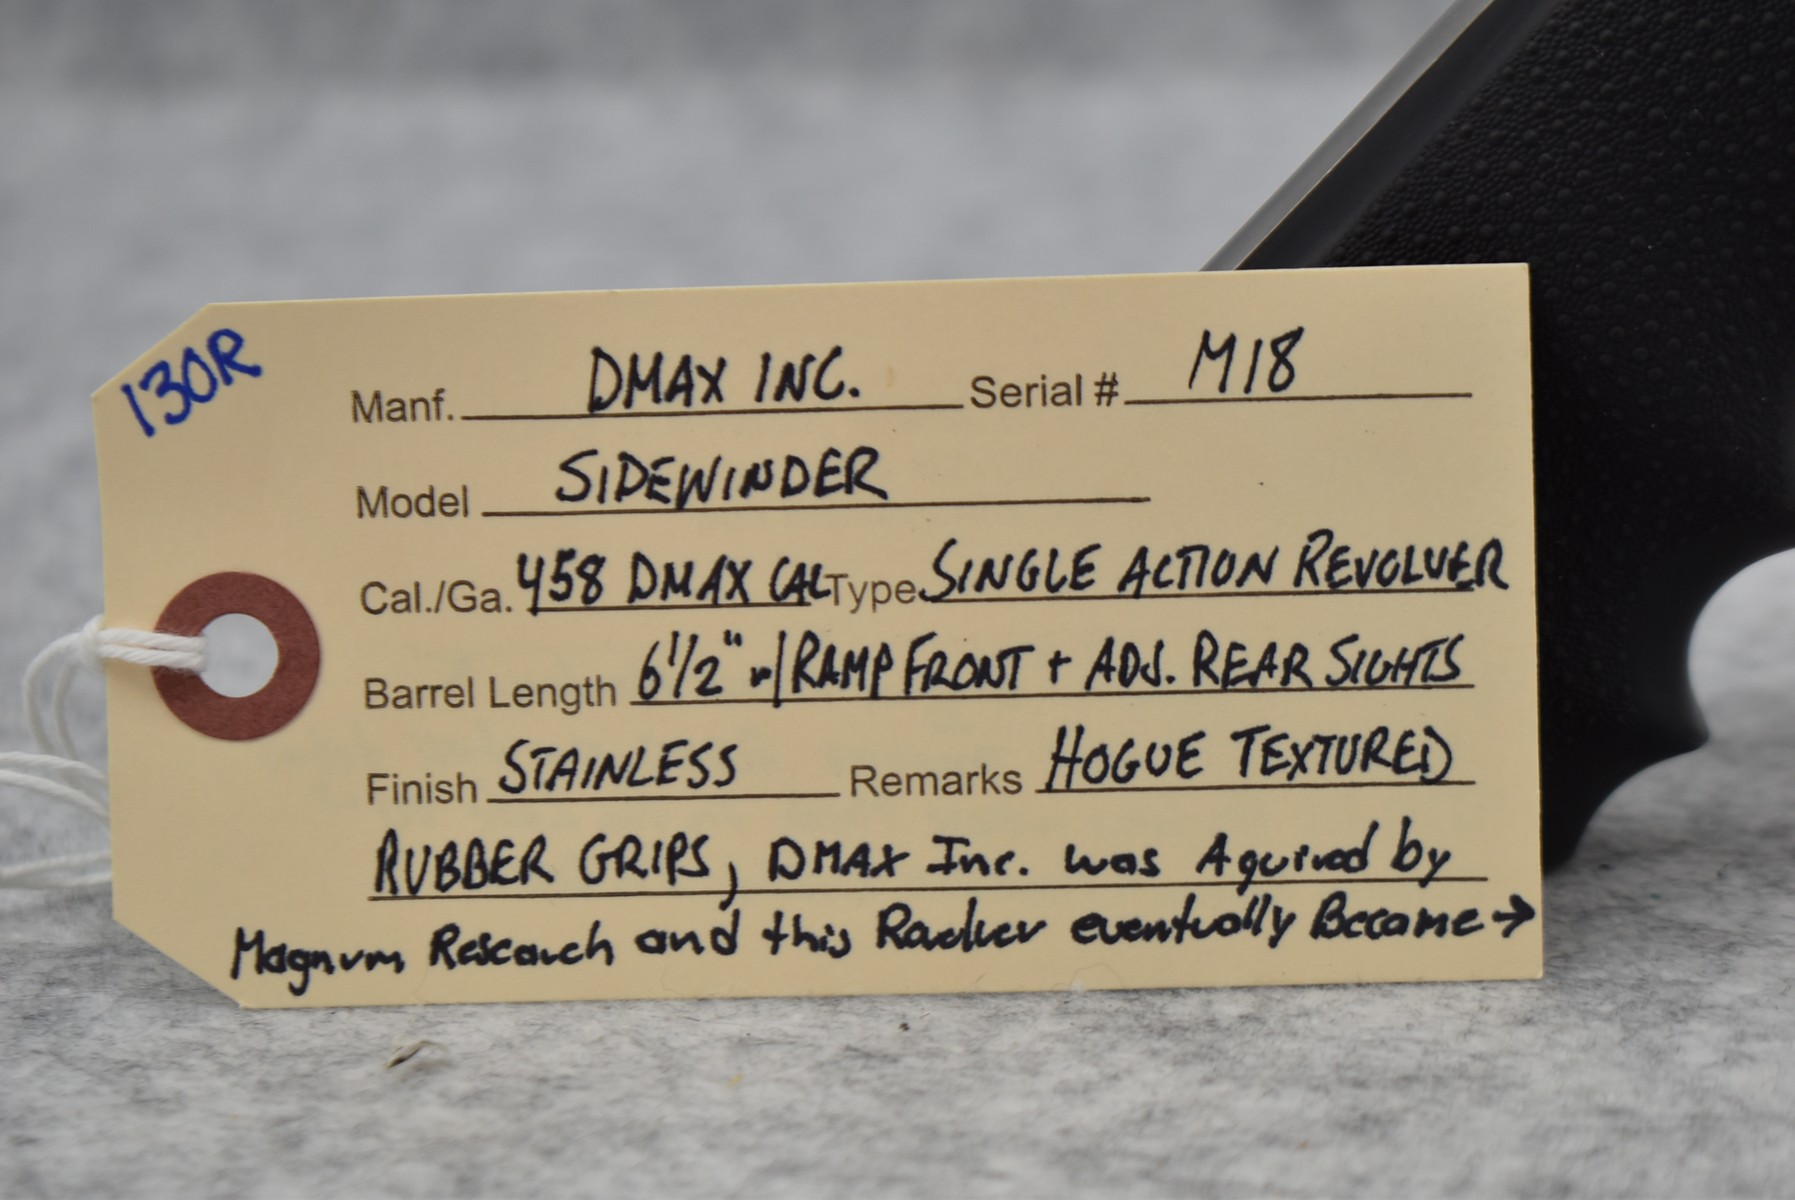 130R
Manf. DMAX INC. Serial # M18
Model SIDEWINDER
Cal./Ga. 458 DMAX CAL Type SINGLE ACTION REVOLVER
Barrel Length 6 1/2" w/ RAMP FRONT + ADJ. REAR SIGHTS
Finish STAINLESS Remarks HOGUE TEXTURED
RUBBER GRIPS, DMAX Inc. was Aquired by
Magnum Research and this Revolver eventually Became →